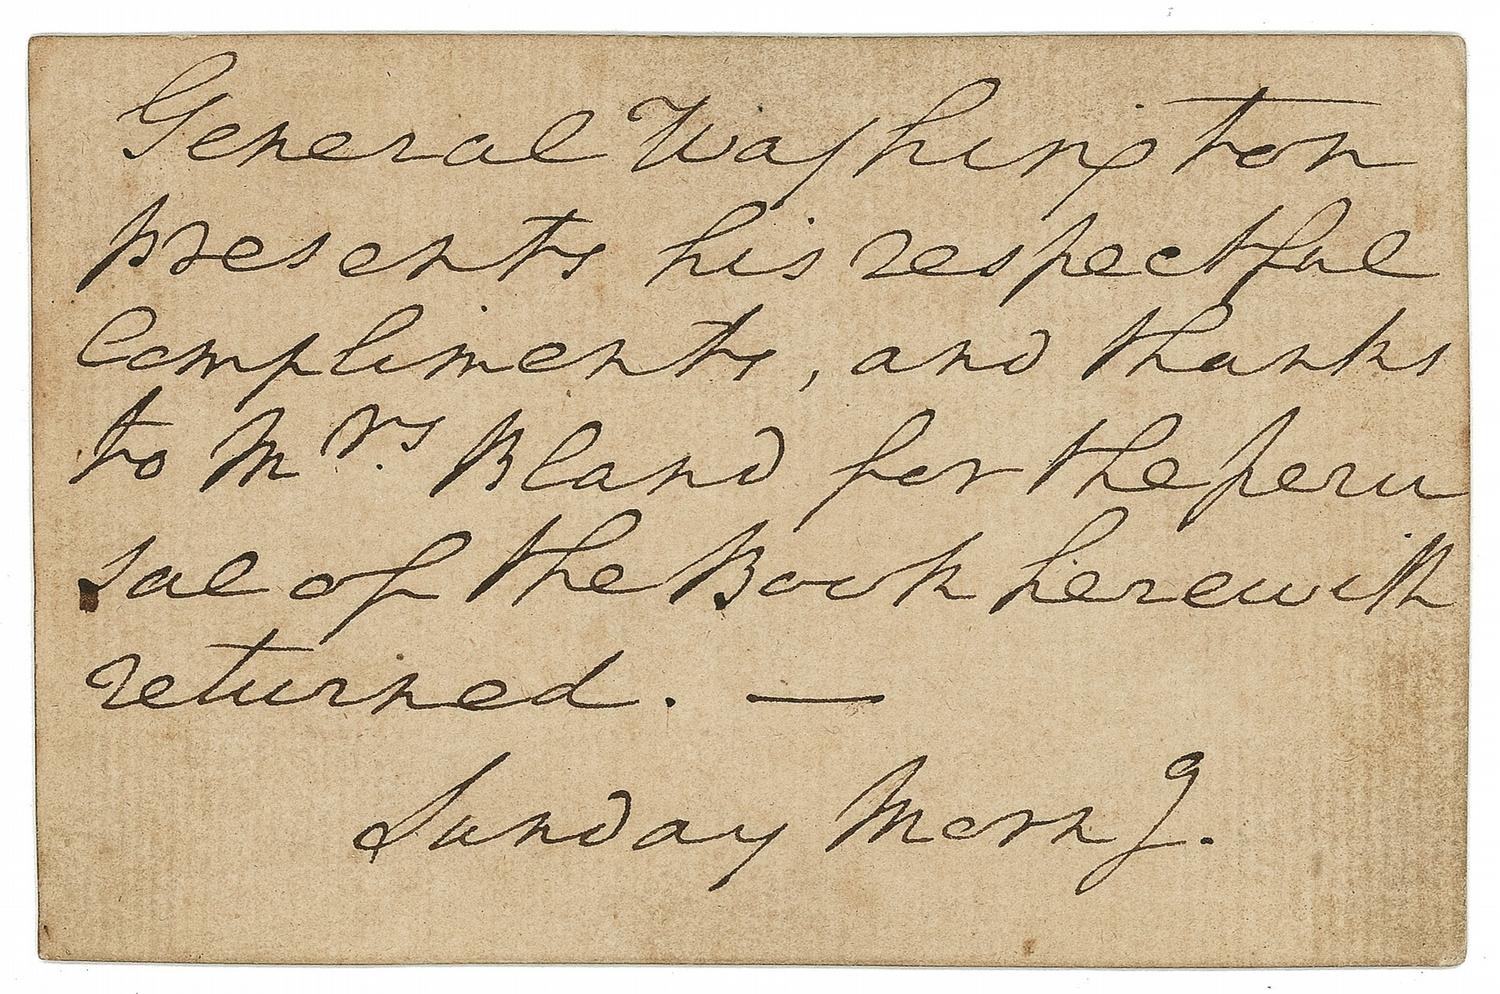 General Washington
presents his respectful
Compliments, and thanks
to Mrs Bland for the peru
sal of the Book herewith
returned. —
Sunday Morng.